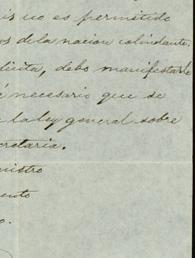 is no es permitido
os de la nacion colindante.
licita, debo manifestarle
é necesario que se
la ley general sobre
cretaria.
nistro
ento
o.